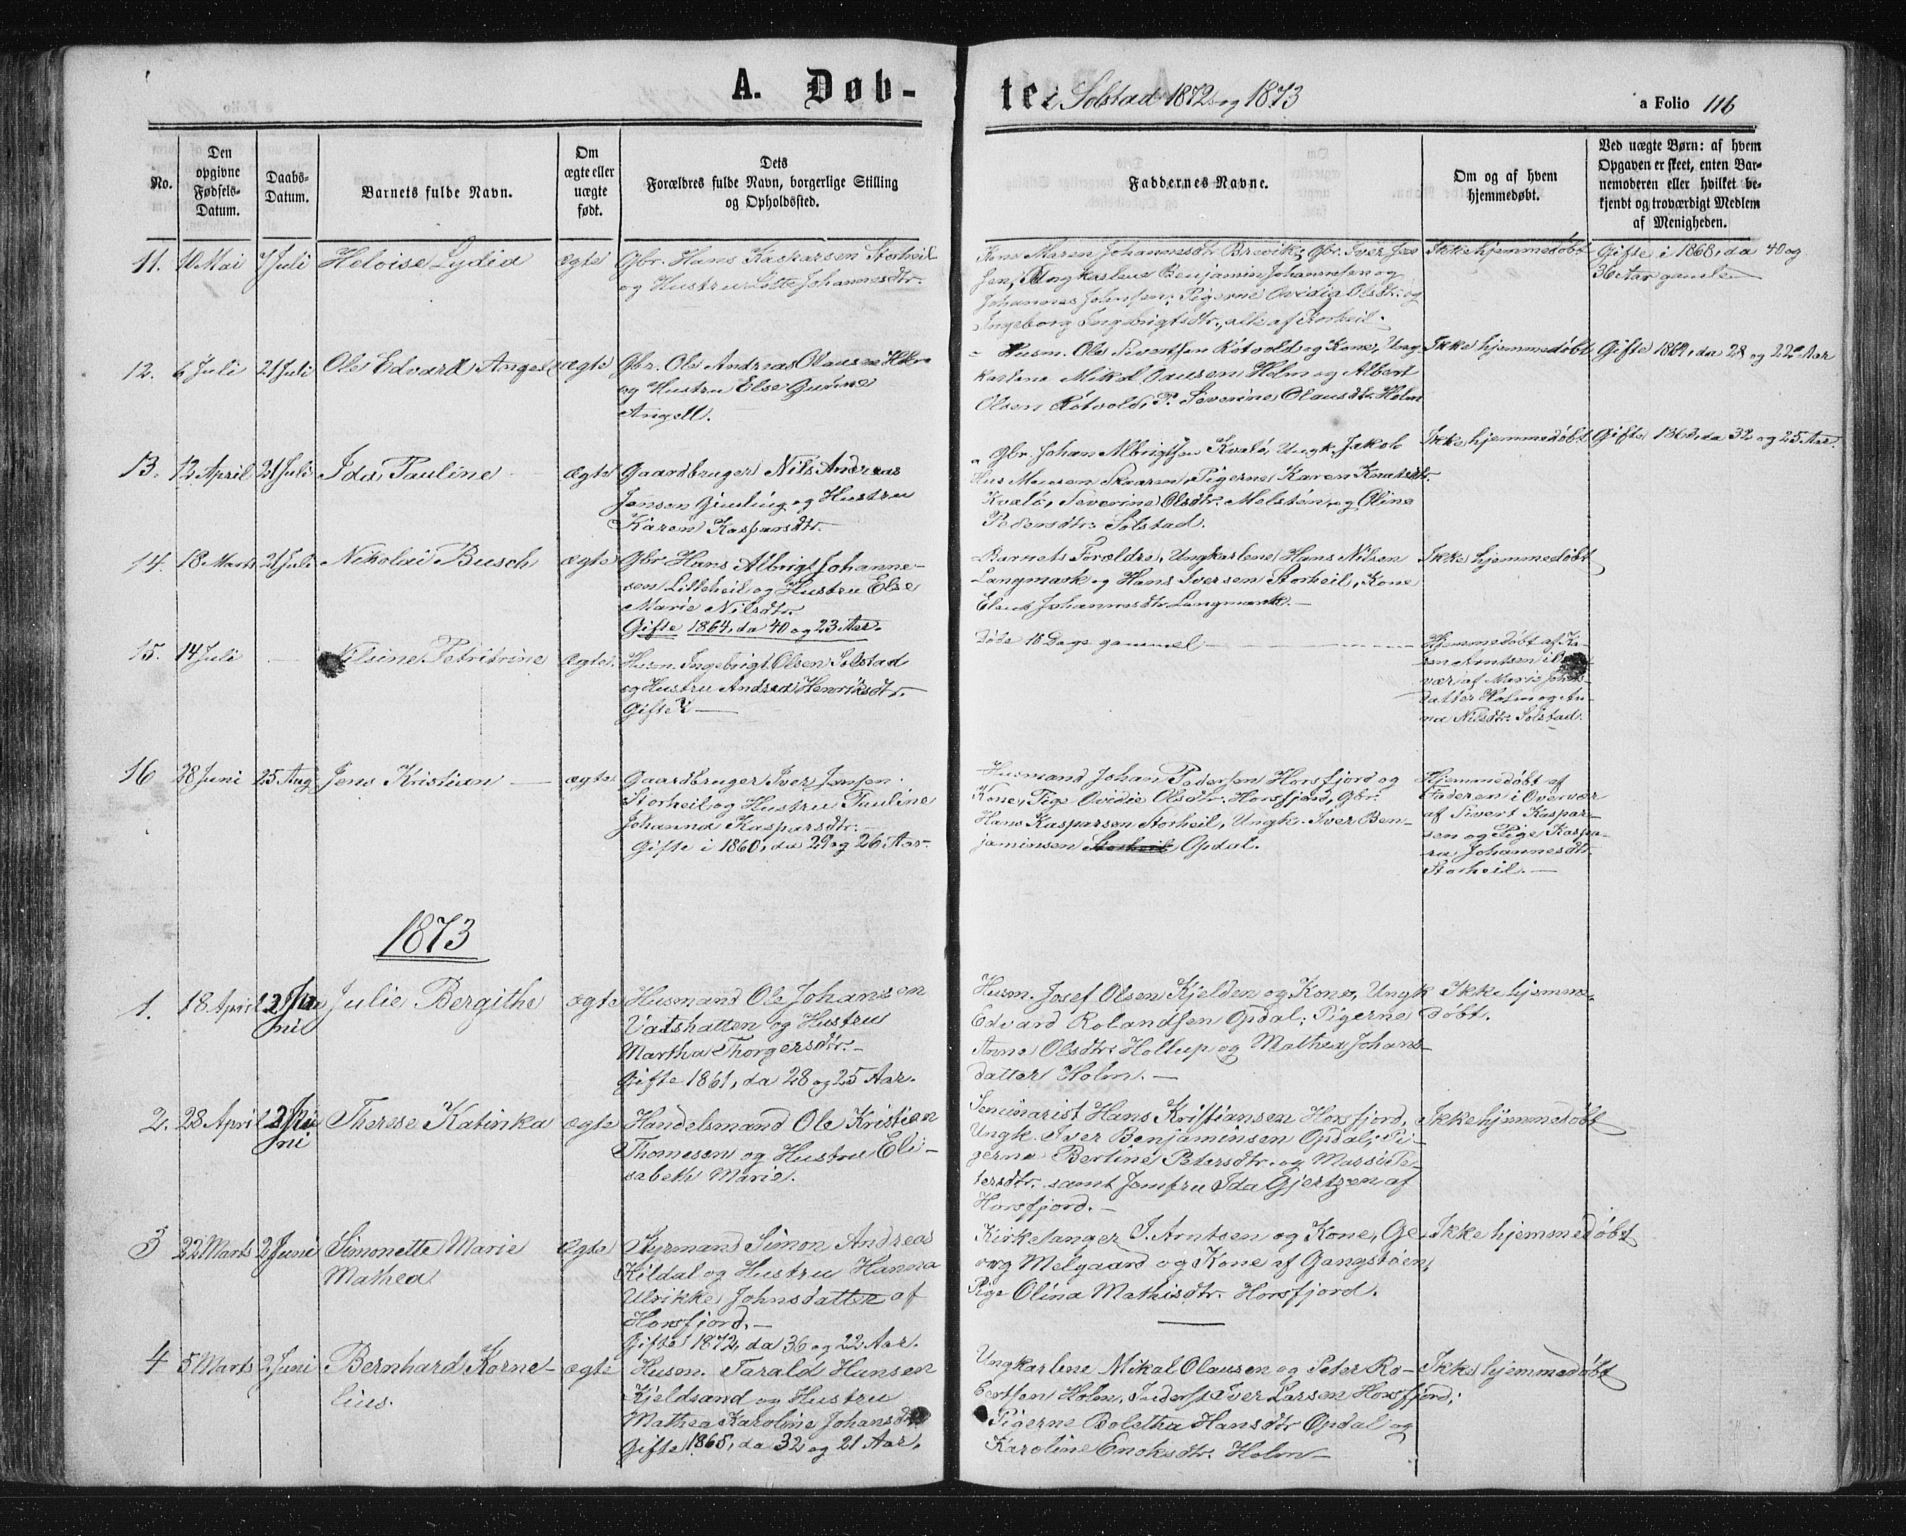 A. Døb-
te i Solstad 1872 og 1873
a Folio 116
No.
Den
opgivne
Fødsels-
Datum.
Daabs-
Datum.
Barnets fulde Navn.
Om
ægte eller
uægte
født.
Dets
Forældres fulde Navn, borgerlige Stilling
og Opholdssted.
Faddernes Navne.
Om og af hvem
hjemmedøbt.
Ved uægte Børn: af hvem
Opgaven er skeet, enten Bar-
nemoderen eller hvilket be-
kjendt og troværdigt Medlem
af Menigheden.
11. 10 Mai 7 Juli Heloise Lydia ægte
Gbr. Hans Kaspersen Storheil
og Hustru Lotte Johannesdtr.
Kone Maren Johannesdtr Brevik; Gbr. Iver Jen
sen, Ungkarlene Benjamin Johannesen og
Johannes Johnsen; Pigerne Ovidia Olsdtr. og
Ingeborg Ingebrigtsdtr., alle af Storheil.
Ikke hjemmedøbt
Gifte i 1868, da 40 og
36 Aar gamle
12. 6 Juli 21 Juli Ole Edvard Angel ægte
Gbr. Ole Andreas Olausen
og Hustru Else
Angell.
Husm. Ole Sivertsen Røtvold og Kone, Ung
karlene Mikal Oausen Holm og Albert
Olsen Røtvold, P. Severine Olausdtr. Holm
Ikke hjemmedøbt
Gifte 1869, da 28 og 22 Aar
13. 12 April 21 Juli Ida Pauline ægte
Gaardbruger Nils Andreas
Jensen og Hustru
Karen Kaspersdtr.
Gbr. Johan Albrigtsen Kvalø, Ungk. Jakob
Skvaren, Pigerne Karen Knutsdtr.
Kvalø, Severine Olsdtr. Melstén, og Oline
Pedersdtr. Solstad.
Ikke hjemmedøbt
Gifte 1863, da 32 og 25 Aar
14. 18 Marts 21 Juli Nikolai Busch ægte
Gbr Hans Albrigt Johanne-
sen Lilleheil og Hustru Else
Marie Nilsdtr.
Gifte 1864, da 40 og 23 Aar.
Barnets Forældre, Ungkarlene Hans Nilsen
Langmark og Hans Iversen Storheil, Kone
Johannesdtr Langmark.
Ikke hjemmedøbt
15. 14 Juli — Nilsine Petritrine ægte
Husm. Ingebrigt Olsen Solstad
og Hustru Andrea Henriksdtr.
Gifte?
Døde 15 Dage gammel
Hjemmedøbt af
Arntsen i
vær af Marie Johans-
datter Holm og An-
na Nilsdtr. Solstad.
16 28 Juni 25 Aug Jens Kristian ægte
Gaardbruger Iver Jensen
Storheil og Hustru Pauline
Johanna Kaspersdtr.
Gifte i 1860, da 29 og 26 Aar.
Husmand Johan Pedersen Horsfjord og
Kone, Pige Ovidie Olsdtr. Horsfjord, Gbr.
Hans Kaspersen Storheil, Ungk. Iver Ben-
jaminsen Storheil Opdal.
Hjemmedøbt af
Faderen i Overvær
af Sivert Kasper-
sen og Pige Kaspa-
ra Johannesdtr.
Storheil.
1873
1. 18 April 2 Ju
ni
Julie Bergithe ægte
Husmand Ole Johansen
Vatshatten og Hustru
Martha Thorgersdtr.
Gifte 1861, da 28 og 25 Aar.
Husm. Josef Olsen Kjelden og Kone, Ungk
Edvard Rolandsen Opdal; Pigerne
Anne Olsdtr. Hollup og Mathea Johans-
datter Holm.
Ikke hjemme-
døbt.
2. 28 April 2 Ju
ni
Therese Katinka ægte
Handelsmand Ole Kristian
Thomesen og Hustru Eli-
sabeth Marie.
Seminarist Hans Kristiansen Horsfjord,
Ungk. Iver Benjaminsen Opdal; Pi-
gerne Bertine Petersdtr. og Pe-
tersdtr. samt Jomfru Ida Gjertzen af
Horsfjord.
Ikke hjemmedøbt
3 22 Marts 2 Juni Simonette Marie
Mathea
ægte
Styrmand Simon Andreas
Kildal og Hustru Hanna
Ulrikke Johnsdatter af
Horsfjord.
Gifte 1872, da 36 og 22 Aar.
Kirkesanger J. Arntsen og Kone, Ge
org Melgaard og Kone af Gangstøen,
Pige Olina Mathisdtr. Horsfjord.
Ikke hjemmedøbt
4 5 Marts 2 Juni Bernhard Korne-
lius.
ægte
Husm. Tarald Hansen
Kjeldsand og Hustru
Mathea Karoline Johansdtr
Gifte 1865, da 32 og 21 Aar.
Ungkarlene Mikal Olausen og Peter Ro-
bertsen Holm, Iver Larsen Horsfjord;
Pigerne Boletha Hansdtr Opdal og
Karoline Enoksdtr. Holm
Ikke hjemmedøbt